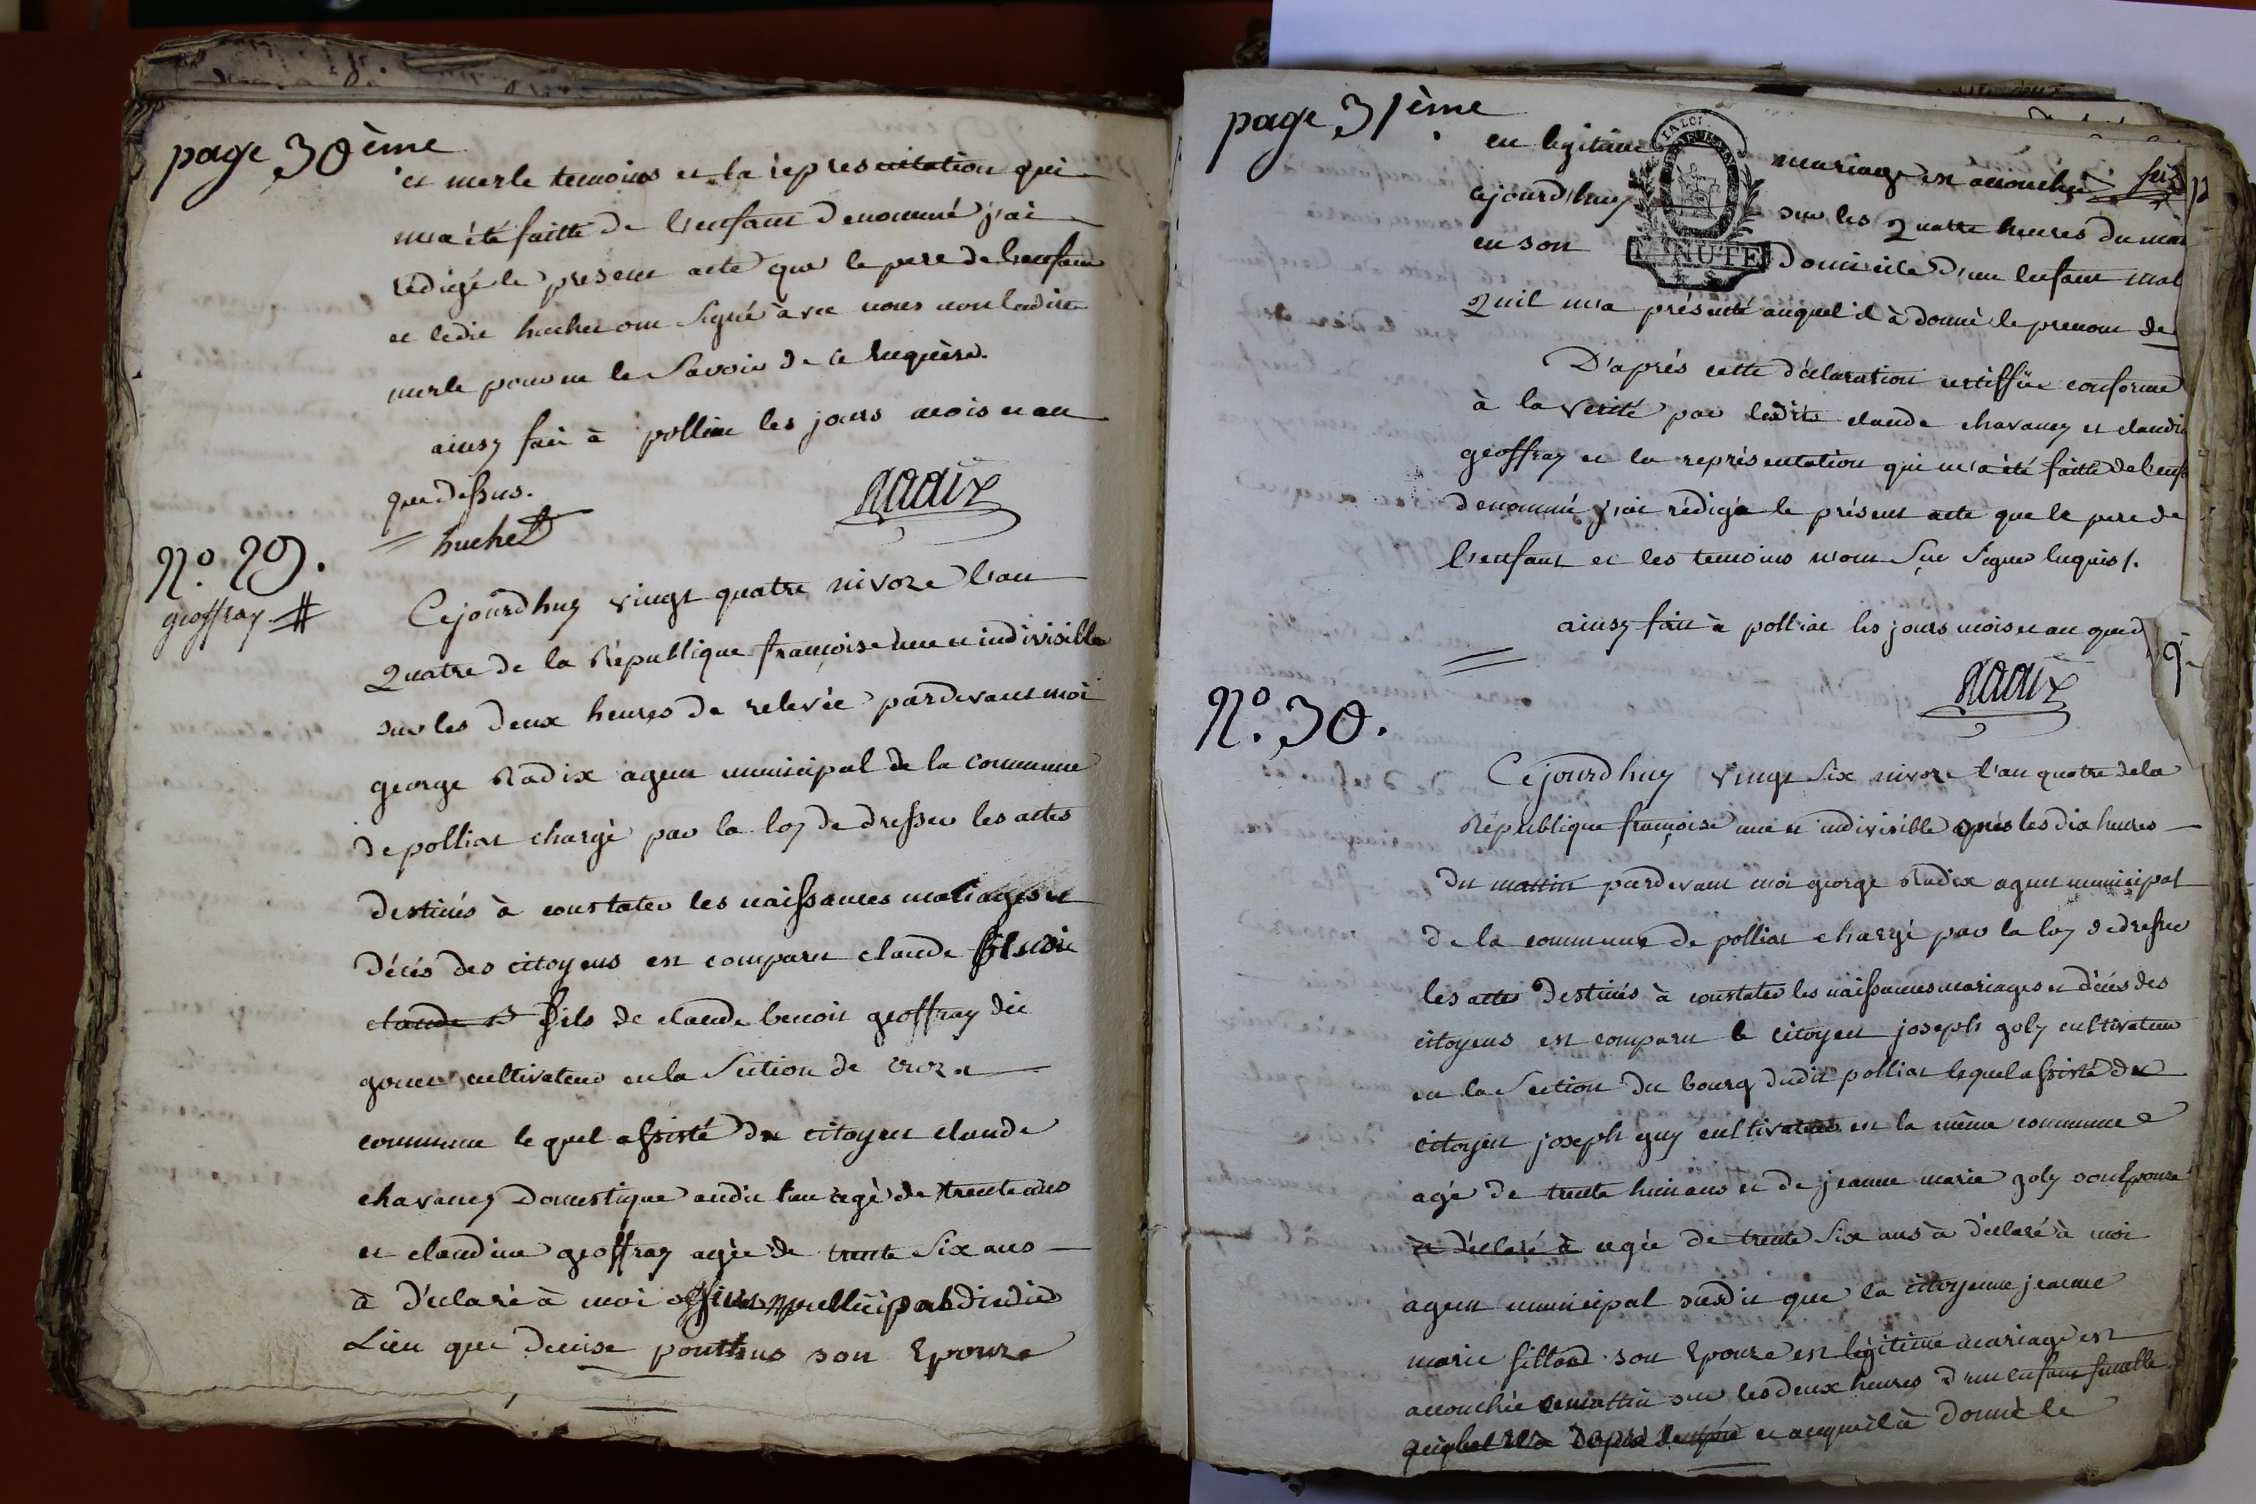 page 30ème
et merle temoins et la répresentation qui
m'a été faitte de l'enfant denommé j'ai
rédigé le present acte que le pere de l'enfant
et ledit huchet ont signé avec nous non ladite
merle pour ne le savoir de ce requise.
ainsy fait à polliat les jours mois et an
que dessus.
huchet
N.o 29.
geoffray
Cejourdhuy vingt quatre nivoze l'an
Quatre de la République françoise une et indivisible
sur les deux heures de relevée pardevant moi
george Radix agent municipal de la commune
de polliat chargé par la loy de dresser les actes
destinés à constater les naissances mariages et
décès des citoyens est comparu claude
claude B fils de claude benoit geoffray dit
cultivateur en la Section de
commune lequel assisté du citoyen claude
chavaney domestique audit lieu agé de trente ans
et claudine geoffray agée de trente six ans
à déclaré à moi municipal dudit
Lieu que denise ponthus son Epouze
page 31ème
LA LOI
en legitime mariage est accouchée
cejourdhuy sur les Quatre heures du
en son domicile d'un enfant
MINUTE
Quil m'a présenté auquel il à donné le prenom de
D'aprés cette déclaration certiffiée conforme
à la verité par lesdits claude chavaney et
geoffray et la représentation qui m'a été faitte de
denommé j'ai rédigé le présent acte que le pere de
l'enfant et les temoins n'ont sçu signer requis /.
ainsy fait à polliat les jours mois et an que
N.o 30.
Cejourdhuy vingt six nivoze l'an quatre de la
République françoise une et indivisible aprés les dix heures
du mattin pardevant moi george Radix agent municipal
de la commune de polliat chargé par la loy de dresser
les actes destinés à constater les naissances mariages et décés des
citoyens est comparu le citoyen joseph goly cultivateur
en la Section du bourg dudit polliat lequel assisté du
citoyen joseph guy cultivateur en la même commune
agé de trente huit ans et de jeanne marie goly son Epouze
et déclaré à agée de trente six ans à déclaré à moi
agent municipal susdit que la citoyenne jeanne
marie fillard son Epouze en légitime mariage est
accouchée ce mattin sur les deux heures d'un enfant femelle
et auquel il à donné le